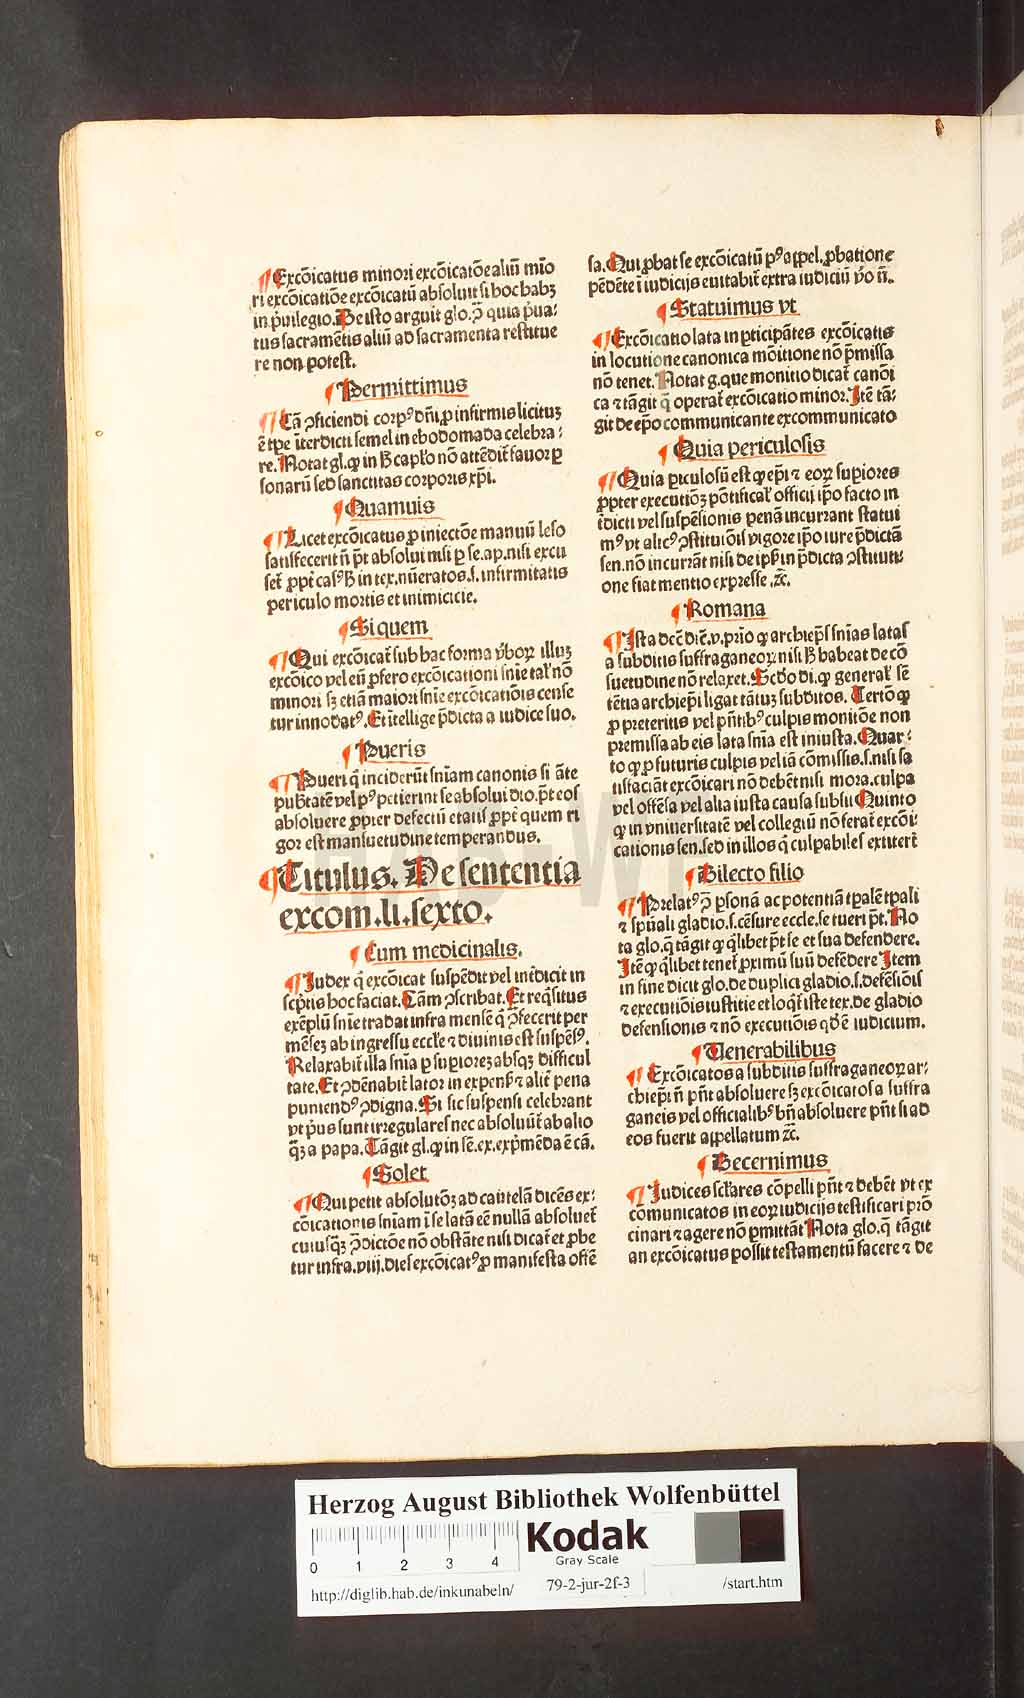 ¶ Excōicatus minori excōicatōe aliū mīo
ri excōicatiōe excōicatū absoluit si hoc habꝫ
in p̄uilegio. De isto arguit glo. ꝯ̄ quia p̄ua⸗
tus sacramētis aliū ad sacramenta restitue
re non potest.
¶ Permittimus
¶ Cā ꝯficiendi corpꝰ dn̄i ꝓ infirmis licituꝫ
ē tpe īterdicti semel in ebodomada celebra⸗
re. Notat gl. ꝙ in h̄ caplo nō attēdit̄ fauor ꝑ
sonarū sed sanctitas corporis xp̄i.
¶ Quamuis
¶ Licet excōicatus ꝓ iniectōe manuū leso
satisfecerit n̄ pt̄ absolui nisi ꝑ se. ap. nisi excu
set̄ ꝓpt̄ casꝰ h̄ in tex. nūeratos .s. infirmitatis
periculo mortis et inimicicie.
¶ Si quem
¶ Qui excōicat̄ sub hac forma v̄boꝝ illuꝫ
excōico vel eū ꝓfero excōicationi snīe tal' nō
minori sꝫ etiā maiori snīe excōicatiōis cense
tur innodatꝰ. Et itellige p̄dicta a iudice suo.
¶ Pueris
¶ Pueri q̄ inciderūt snīam canonis si āte
pub̄tatē vel pꝰ petierint se absolui dio. pt̄ eos
absoluere ꝓpter defectū etatis ꝓpt̄ quem ri
gor est mansuetudine temperandus.
¶ Titulus. De sententia
excom. li. sexto.
¶ Cum medicinalis.
¶ Judex q̄ excōicat suspēdit vel int̄dicit in
scptis hoc faciat. Cām ꝯscribat. Et req̄situs
exēplū snīe tradat infra mensē q̄ ꝯ̄fecerit per
mēseꝫ ab ingressu eccl'e ⁊ diuinis est suspēsꝰ.
Relaxabit̄ illa snīa ꝑ supioreꝫ absqꝫ difficul
tate. Et ꝯdēnabit̄ lator in expens̄ ⁊ alit̄ pena
puniendꝰ ꝯdigna. Si sic suspensi celebrant
vt pͥus sunt irregulares nec absoluūt̄ ab alio
q̄ꝫ a papa. Tāgit gl. ꝙ in sē. ex. exp̄mēda ē cā.
¶ Solet
¶ Qui petit absolutōꝫ ad cautelā dicēs ex⸗
cōicationis snīam ī se latā eē nullā absoluet̄
cuiusq̄ꝫ ꝯ̄dictōe nō obstāte nisi dicat̄ et ꝓbe
tur infra .viij. dies excōicatꝰ ꝓ manifesta offē
sa. Qui ꝓbat se excōicatū pꝰ appel. ꝓbatione
pēdēte ī iudicijs euitabit̄ extra iudiciū v̄o n̄.
¶ Statuimus vt
¶ Excōicatio lata in ꝑticipātes excōicatis
in locutione canonica mōitione nō p̄missa
nō tenet. Notat g. que monitio dicat̄ canōi
ca ⁊ tāgit q̄ operat̄ excōicatio minor. Itē tā⸗
git de ep̄o communicante excommunicato
¶ Quia periculosis
¶ Quia ꝑiculosū est ꝙ ep̄i ⁊ eoꝝ supiores
ꝓpter executiōꝫ pōntifical' officij ip̄o facto in
t̄dicti vel suspēsionis penā incurrant statui
mꝰ vt alicꝰ ꝯstitutiōis vigore ip̄o iure p̄dictā
sen. nō incurrāt nisi de ip̄is in p̄dicta ꝯstituti⸗
one fiat mentio expresse. ⁊c̄.
¶ Romana
¶ Ista dec̄ dic̄ .v. prīo ꝙ archiep̄s snīas latas
a subditis suffraganeoꝝ nisi h̄ habeat de cō
suetudine nō relaxet. Scdo di. ꝙ general' sē
tētia archiep̄i ligat tātuꝫ subditos. Tertio ꝙ
ꝓ preteritis vel pn̄tibꝰ culpis monitōe non
premissa ab eis lata snīa est iniusta. Quar⸗
to ꝙ ꝓ futuris culpis vel iā cōmissis .s. nisi sa
tisfaciāt excōicari nō debēt nisi mora. culpa
vel offēsa vel alia iusta causa subsit Quinto
ꝙ in vniuersitatē vel collegiū nō ferat̄ excōi⸗
cationis sen. sed in illos q̄ culpabiles extiterīt
¶ Dilecto filio
¶ Prelatꝰ ꝯ̄ ꝑsonā ac potentiā tꝑalē tꝑali
⁊ spūali gladio .s. cēsure eccle. se tueri pt̄. No
ta glo. q̄ tāgit ꝙ q̄libet pt̄ se et sua defendere.
Itē ꝙ q̄libet tenet̄ ꝓximū suū defēdere Item
in fine dicit glo. de duplici gladio .s. defēsiōis
⁊ executiōis iustitie et loqt̄ iste tex. de gladio
defensionis ⁊ nō executiōis qd' ē iudicium.
¶ Venerabilibus
¶ Excōicatos a subditis suffraganeoꝝ ar⸗
chiep̄i n̄ pn̄t absoluere sꝫ excōicatos a suffra
ganeis vel officialibꝰ bn̄ absoluere pn̄t si ad
eos fuerit appellatum ⁊c̄.
¶ Decernimus
¶ Judices sclares cōpelli pn̄t ⁊ debēt vt ex
cōmunicatos in eoꝝ iudicijs testificari prō
cinari ⁊ agere nō ꝑmittāt Nota glo. q̄ tāgit
an excōicatus possit testamentū facere ⁊ de
Herzog August Bibliothek Wolfenbüttel
0 1 2 3 4
Kodak
Gray Scale
http://diglib.hab.de/inkunabeln/ 79-2-jur-2f-3 /start.htm
HAB-WF